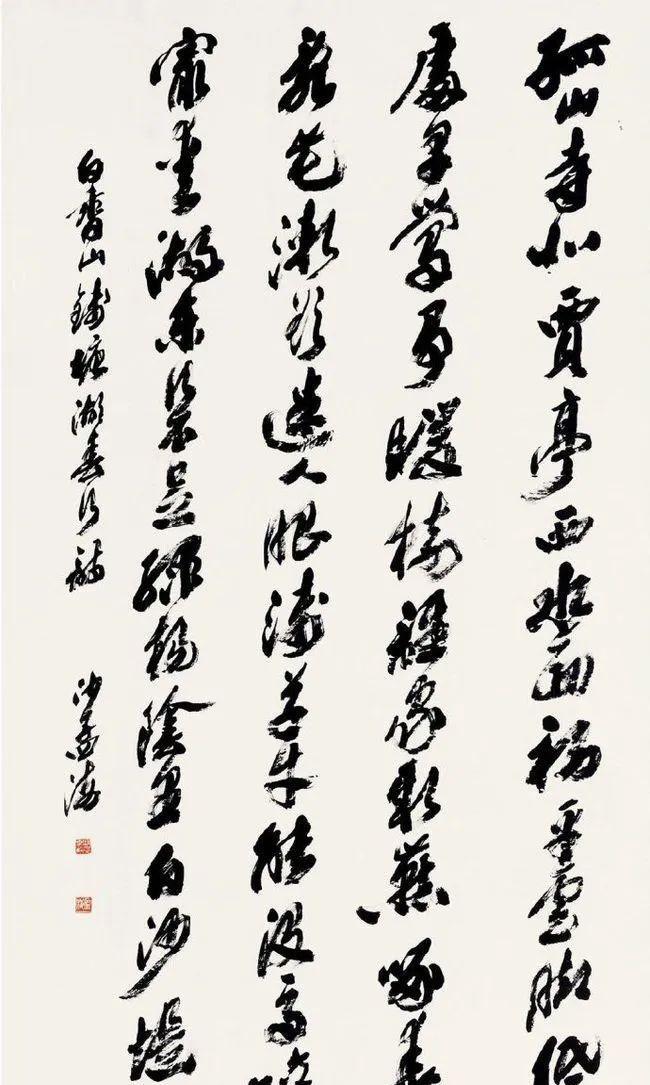 孤山寺北賈亭西水面初平雲脚低
處早鶯爭暖樹誰家新燕啄春
亂花漸欲迷人眼淺草才能没馬蹄
最愛湖東行不足綠楊陰里白沙堤
白香山錢塘湖春行詩
沙孟海